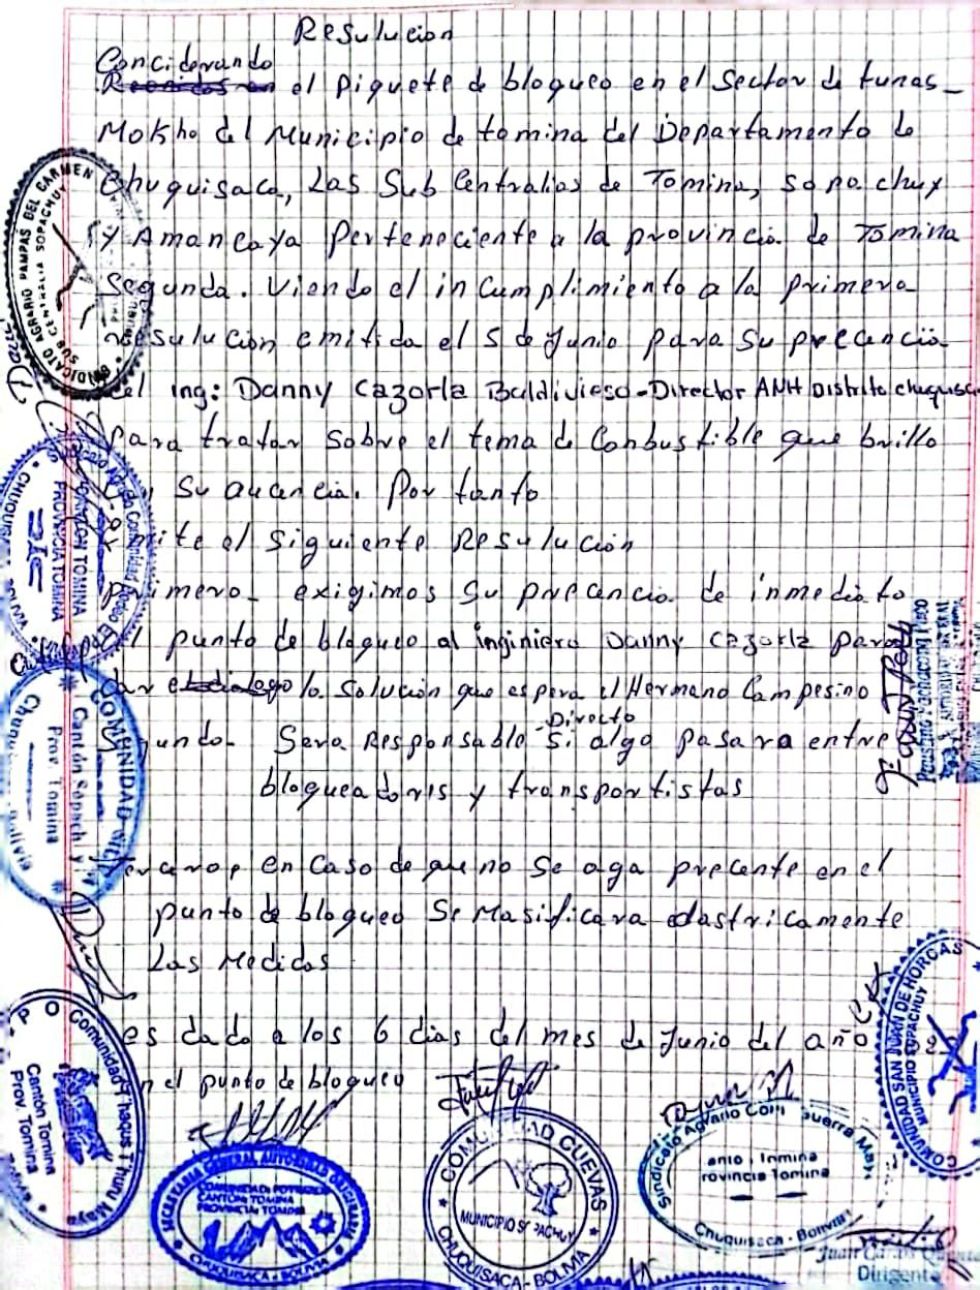 Resulucion
Conciderando
el Piquete de bloqueo en el Sector de tunas-
Mokho del Municipio de tomina del Departamento de
Chuquisaca, Las Sub Centralias de Tomina, sopachuy
y Amancaya Perteneciente a la provincia de Tomina
Segunda. Viendo el incumplimiento a la primera
resulucion emitida el 5 de Junio para su precencia
del ing: Danny Cazorla Baldivieso-Director ANH Distrito Chuquisaca
para tratar sobre el tema de Conbustible que brillo
su aucencia. Por tanto
emite el siguiente Resulución
primero- exigimos su precencia de inmediato
al punto de bloqueo al inginiero Danny Cazorla para
dar el dialogo la solución que espera el Hermano Campesino
Directo
Segundo- Sera Responsable si algo pasara entre
bloqueadores y transportistas
Tercero, en caso de que no se aga precente en el
punto de bloqueo se Masificara drastricamente
Las Medidas
es dado a los 6 dias del mes de Junio del año
en el punto de bloqueo
SINDICATO AGRARIO PAMPAS DEL CARMEN
SUB CENTRALIA SOPACHUY
CANTON TOMINA
PROVINCIA TOMINA
COMUNIDAD
Cantón Sopachuy
Prov. Tomina
Comunidad Thaqus Thuru Mayu
Cantón Tomina
Prov. Tomina
SECRETARIA GENERAL AUTORIDAD ORIGINARIA
CANTON: TOMINA
PROVINCIA: TOMINA
CHUQUISACA - BOLIVIA
COMUNIDAD CUEVAS
MUNICIPIO SOPACHUY
CHUQUISACA - BOLIVIA
Sindicato Agrario Com Guerra Mayu
Provincia Tomina
Chuquisaca - Bolivia
COMUNIDAD SAN JUAN DE HORCAS
MUNICIPIO SOPACHUY
Juan Carlos
Dirigente